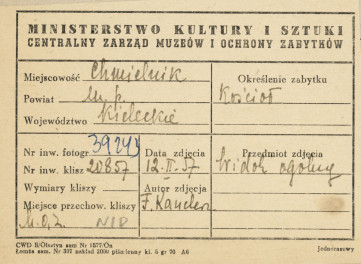 MINISTERSTWO KULTURY I SZTUKI
CENTRALNY ZARZĄD MUZEÓW I OCHRONY ZABYTKÓW
Miejscowość Chmielnik
Powiat m. p.
Województwo Kieleckie
Określenie zabytku
Kościół
Nr inw. fotogr
Nr inw. klisz 20857
Wymiary kliszy
Miejsce przechow. kliszy
Data zdjęcia
12-II-57
Autor zdjęcia
F. Kandefer
Przedmiot zdjęcia
Widok ogólny
CWD R/Olsztyn zam Nr 1577/Oa
Łomża zam. Nr 392 nakład 2000 piśmienny kl. 5 gr 70 A6
Jednorazowy